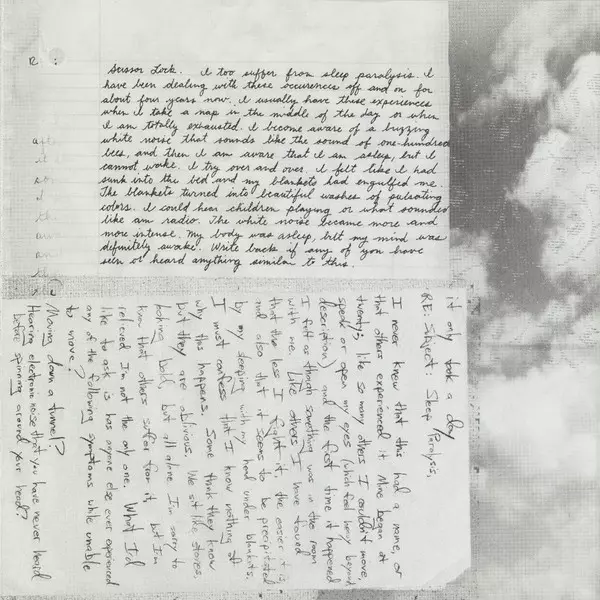 R :
Scissor Lock. I too suffer from sleep paralysis. I
have been dealing with these occurences off and on for
about four years now. I usually have these experiences
when I take a nap in the middle of the day or when
I am totally exhausted. I become aware of a buzzing
white noise that sounds like the sound of one-hundred
bees, and then I am aware that I am asleep, but I
cannot wake. I try over and over. I felt like I had
sunk into the bed and my blankets had engulfed me.
The blankets turned into beautiful washes of pulsating
colors. I could hear children playing or what sounded
like am radio. The white noise became more and
more intense. My body was asleep, but my mind was
definitely awake. Write back if any of you have
seen or heard anything similar to this.
it only took a day
RE: Subject: Sleep Paralysis,
I never knew that this had a name, or
that others experienced it. Mine began at
twenty; like so many others I couldn't move,
speak or open my eyes (which feel heavy beyond
description) and the first time it happened
I felt as though something was in the room
with me. Like others I have found
that the less I fight it, the easier it is,
and also that it seems to be precipitated
by my sleeping with my head under blankets.
I must confess that I know nothing of
why this happens. Some think they know
but they are oblivious. We sit like stones,
but all alone I'm sorry to
know that others suffer from it, but I'm
relieved I'm not the only one. What I'd
like to ask is has anyone else ever experienced
any of the following symptoms while unable
to move?
~ Moving down a tunnel?
Hearing electronic noise that you have never heard
before spinning around your head?